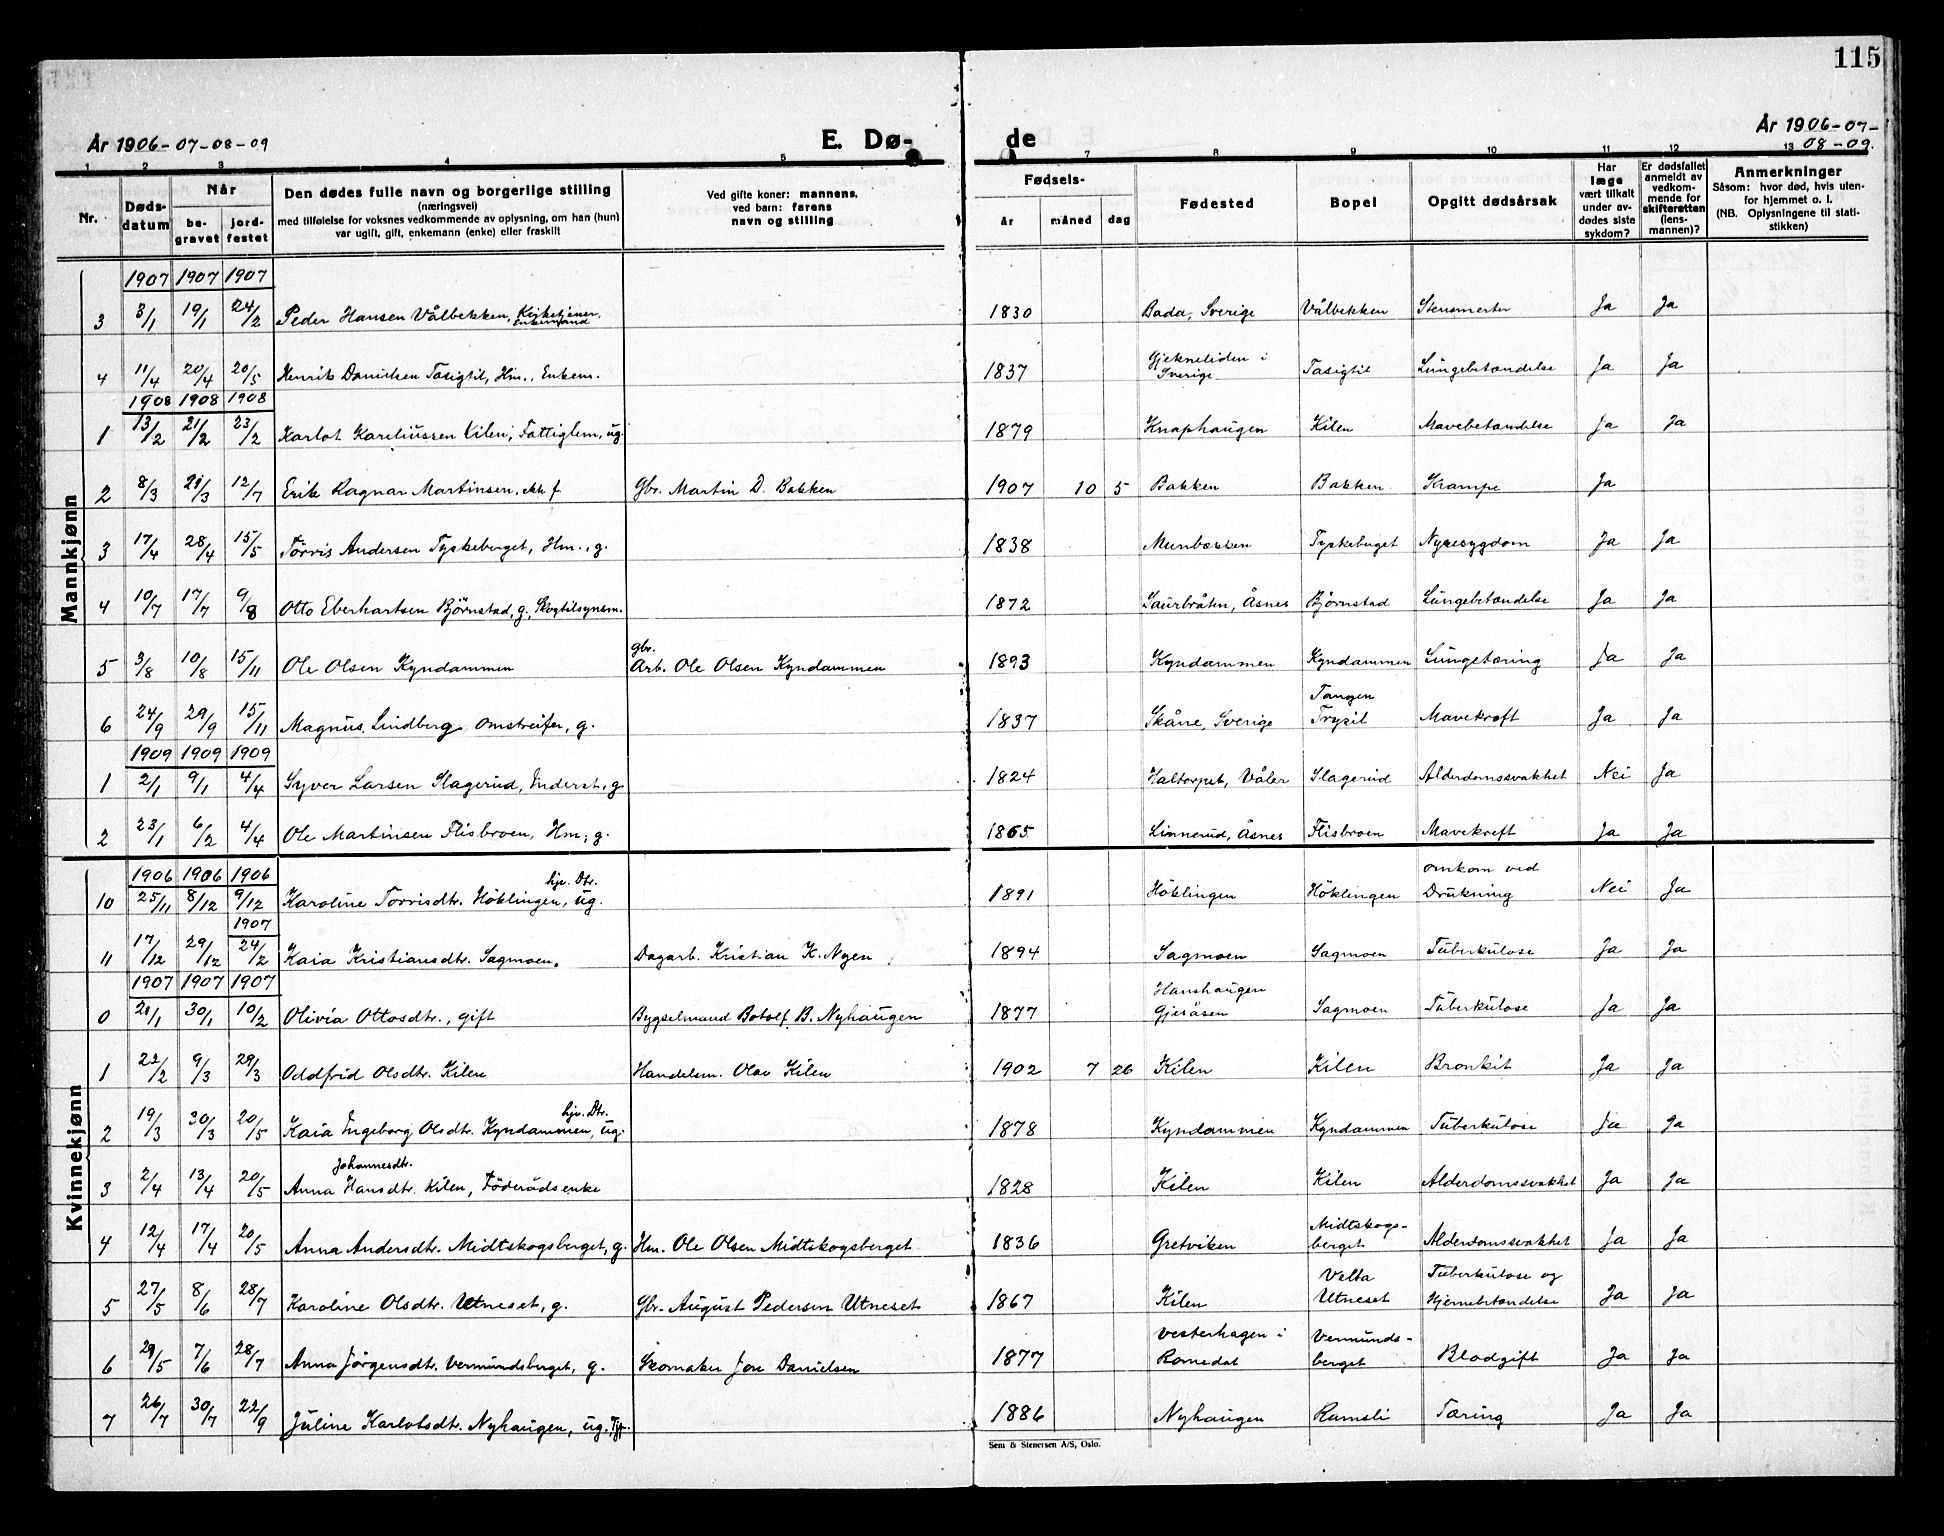 115
År 1906-07-08-09
E. Dø-
de
År 1906-07-
08-09.
1 2 3 4 5 7 8 9 10 11 12 13
Nr. Dødsdatum Når begravet jordfestet
Den dødes fulle navn og borgerlige stilling
(næringsvei)
med tilføielse for voksnes vedkommende av oplysning, om han (hun)
var ugift, gift, enkemann (enke) eller fraskilt
Ved gifte koner: mannens,
ved barn: farens
navn og stilling
Fødsels-
år måned dag
Fødested
Bopel
Opgitt dødsårsak
Har læge vært tilkalt under avdødes siste sykdom?
Er dødsfallet anmeldt av vedkommende for skifteretten (lensmannen)?
Anmerkninger
Såsom: hvor død, hvis utenfor hjemmet o. l.
(NB. Oplysningene til statistikken)
Mannkjønn
1907 1907 1907
3 3/1 19/1 24/2 Peder Hansen Vålbekken, Kirketjener, Enkemand 1830 Bada, Sverige Vålbekken Stensmerter Ja Ja
4 11/4 20/4 20/5 Henrik Danielsen Tasigtil, Hm., Enkem. 1837 Gjekneliden i Sverige Tasigtil Lungebetændelse Ja Ja
1908 1908 1908
1 13/2 21/2 23/2 Karlot Kareliussen Kilen, Fattiglem, ug. 1879 Knaphaugen Kilen Mavebetændelse Ja Ja
2 8/3 21/3 12/7 Erik Ragnar Martinsen, ekte f Gbr. Martin D. Bakken 1907 10 5 Bakken Bakken Krampe Ja
3 17/4 28/4 15/5 Torris Andersen Tyskeberget, Hm., g. 1838 Munbekken Tyskeberget Nyresygdom Ja Ja
4 10/7 17/7 9/8 Otto Eberhartsen Bjørnstad, g., Skogtilsynsm. 1872 Saurbråten, Åsnes Bjørnstad Lungebetændelse Ja Ja
5 3/8 10/8 15/11 Ole Olsen Kyndammen Gbr. Arb. Ole Olsen Kyndammen 1893 Kyndammen Kyndammen Lungetæring Ja Ja
6 24/9 29/9 15/11 Magnus Lindberg omstreifer, g. 1837 Skåne, Sverige Tangen Trysil Mavekreft Ja Ja
1909 1909 1909
1 2/1 9/1 4/4 Syver Larsen Slagerud, Inderst, g 1824 Haltorpet, Våler Slagerud Alderdomssvakhet Nei Ja
2 23/1 6/2 4/4 Ole Martinsen Flisbroen, Hm., g. 1865 Linnerud, Åsnes Flisbroen Mavekreft Ja Ja
Kvinnekjønn
1906 1906 1906
10 25/11 8/12 9/12 Karoline Torrisdtr. Höklingen, hjv. Dtr. ug. 1891 Höklingen Höklingen omkom ved Drukning Nei Ja
1907
11 17/12 29/12 24/2 Kaia Kristiansdtr. Sagmoen. Dagarb. Kristian K. Nyen 1894 Sagmoen Sagmoen Tuberkulose Ja Ja
1907 1907 1907
0 21/1 30/1 10/2 Olivia Ottosdtr., gift Bygselmand Botolf B. Nyhaugen 1877 Hanshaugen Gjesåsen Sagmoen Tuberkulose Ja Ja
1 22/2 9/3 29/3 Oddfrid Olsdtr. Kilen Handelsm. Olav Kilen 1902 7 26 Kilen Kilen Bronkit Ja Ja
2 19/3 30/3 20/5 Kaia Ingeborg Olsdtr. Kyndammen, hjv. Dtr. ug. 1878 Kyndammen Kyndammen Tuberkulose Ja Ja
3 2/4 13/4 20/5 Anna Johannesdtr. Hansdtr. Kilen, Föderådsenke 1828 Kilen Kilen Alderdomssvakhet Ja Ja
4 12/4 17/4 20/5 Anna Andersdtr. Midtskogsberget, g. Hm. Ole Olsen Midtskogsberget 1836 Gretviken Midtskogsberget Alderdomssvakhet Ja Ja
5 27/5 8/6 28/7 Karoline Olsdtr. Utneset, g. Gbr. August Pedersen Utneset 1867 Kilen Velta Utneset Tuberkulose og Hjernebetændelse Ja Ja
6 29/5 7/6 28/7 Anna Jörgensdtr. Vermundsberget, g. Skomaker Jon Danielsen 1877 Vesterhagen i Romedal Vermundsberget Blodgift Ja Ja
7 26/7 30/7 22/9 Juline Karlotsdtr. Nyhaugen, ug., Tjp. 1886 Nyhaugen Ramsli Tæring Ja Ja
Sem & Stenersen A/S, Oslo.